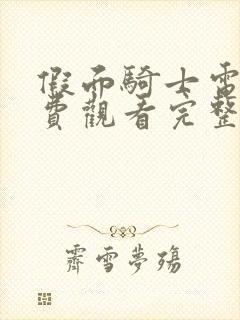 假面騎士電
費觀看完整
霽雪夢殤